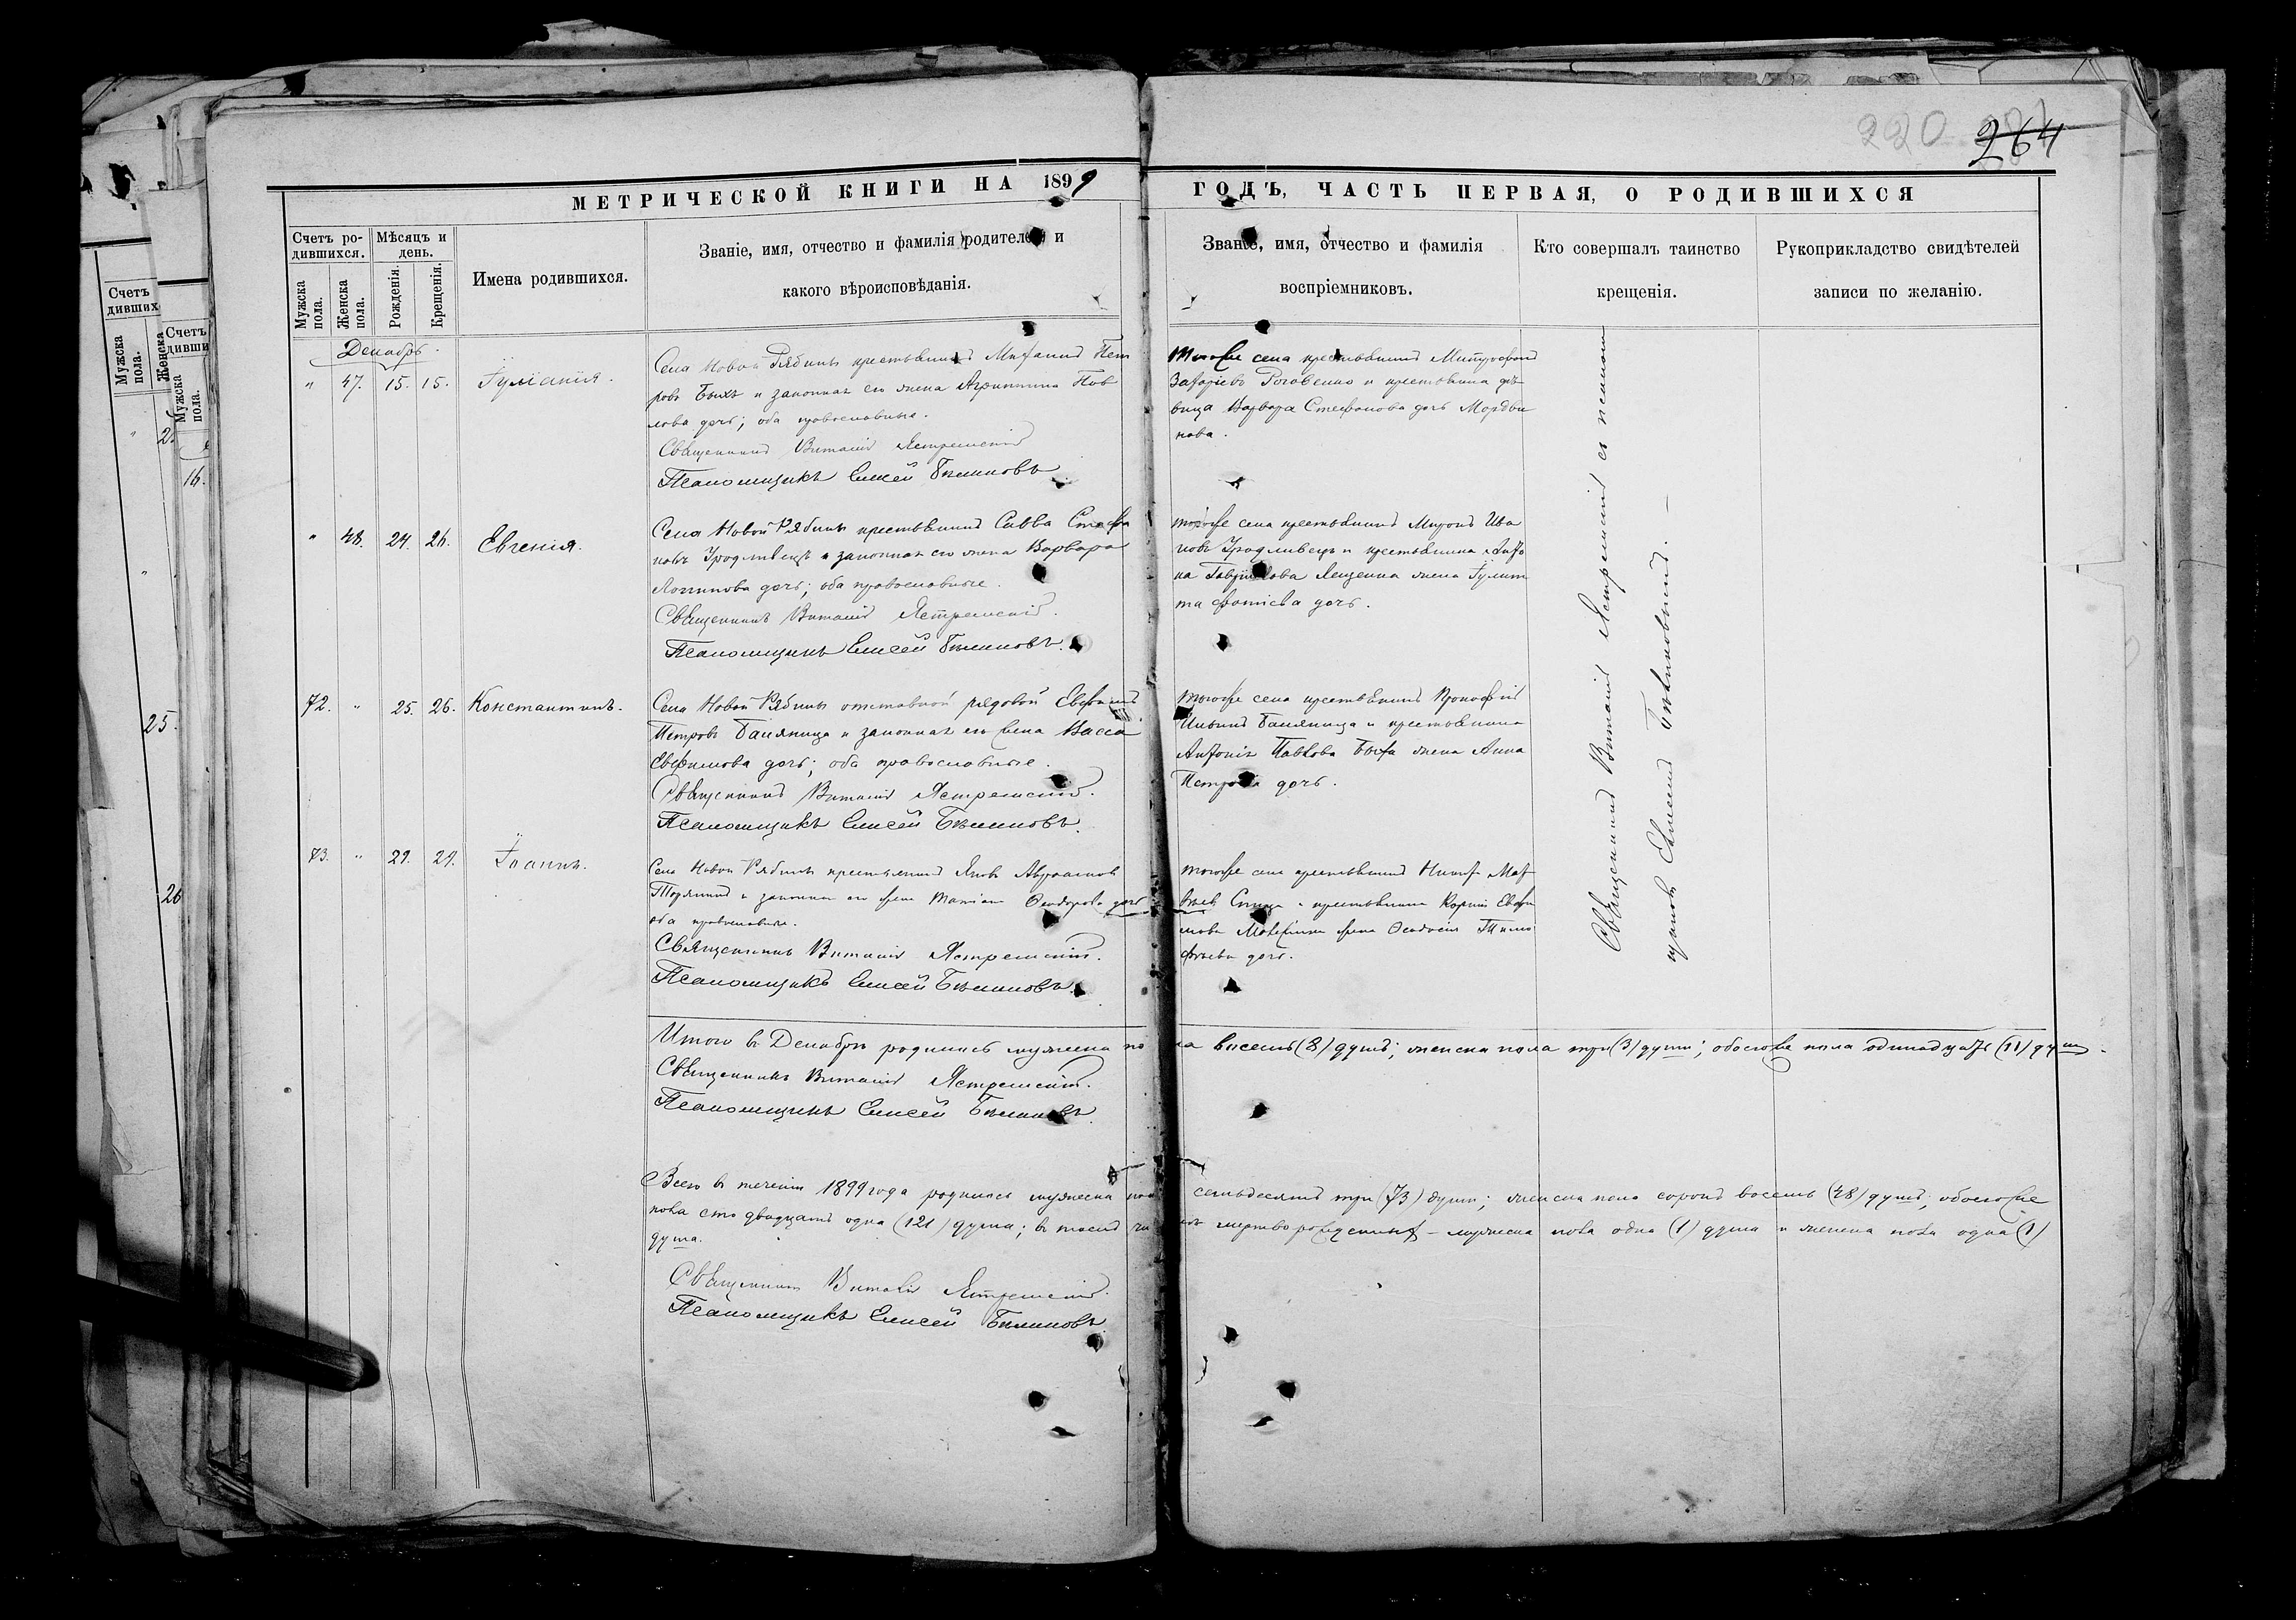 220
264
МЕТРИЧЕСКОЙ КНИГИ НА 1899
ГОДЪ, ЧАСТЬ ПЕРВАЯ, О РОДИВШИХСЯ
Счетъ ро-
дившихся.
Мѣсяцъ и
день.
Мужска
пола.
Женска
пола.
Рожденія.
Крещенія.
Имена родившихся.
Званіе, имя, отчество и фамилія родителей и
какого вѣроисповѣданія.
Званіе, имя, отчество и фамилія
воспріемниковъ.
Кто совершалъ таинство
крещенія.
Рукоприкладство свидѣтелей
записи по желанію.
Счетъ
дивших
Мужска
пола.
Женска
Счетъ
дивши
Мужска
пола.
16.
25.
26
Декабрь.
" 47. 15. 15. Іуліанія.
Села Новой Рябины крестьянинъ Михаилъ Пет
ровъ Быхъ и законная его жена Агриппина
дочь; оба православные.
Священникъ Виталій Ястремскій
Псаломщикъ Елисей
тогоже села крестьянинъ Митрофанъ
Роговенко и крестьянка дѣ-
вица Варвара Стефанова дочь Мордви
нова.
" 48. 24. 26. Евгенія.
Села Новой Рябины крестьянинъ Савва Стефа
новъ Уродливецъ и законная его жена Варвара
Логинова дочь; оба православные.
Священникъ Виталій Ястремскій.
Псаломщикъ Елисей
тогоже села крестьянинъ Миронъ Ива
новъ Уродливецъ и крестьянина
жена Іулит
та Фотіева дочь.
72. " 25. 26. Константинъ.
Села Новой Рябины отставной рядовой Евфимій
Петровъ Баляница и законная его жена Васса
Евфимова дочь; оба православные.
Священникъ Виталій Ястремскій.
Псаломщикъ Елисей
тогоже села крестьянинъ Прокофій
Ильинъ Баляница и крестьянина
Антонія Павлова Быха жена Анна
Петрова дочь.
73. " 29. 29. Іоаннъ.
Села Новой Рябины крестьянинъ Яковъ Авраамовъ
и законная его жена Ѳеодорова дочь
оба православные.
Священникъ Виталій Ястремскій.
Псаломщикъ Елисей
тогоже села крестьянинъ
и крестьянина Евфи
мова жена Ѳеодосія Тимо
фѣева дочь.
Священникъ Виталій Ястремскій съ псалом
щикомъ Елисеемъ
Итого въ Декабрѣ родились мужеска пола восемь (8) душъ; женска пола три (3) души; обоего пола одинадцать (11) душъ.
Священникъ Виталій Ястремскій.
Псаломщикъ Елисей
Всего въ теченіи 1899 года родились мужеска пола семьдесятъ три (73) души; женска пола сорокъ восемь (48) душъ; обоегоже
пола сто двадцать одна (121) душа; въ томъ числѣ мертворожденныхъ – мужеска пола одна (1) душа и женска пола одна (1)
душа.
Священникъ Виталій Ястремскій.
Псаломщикъ Елисей